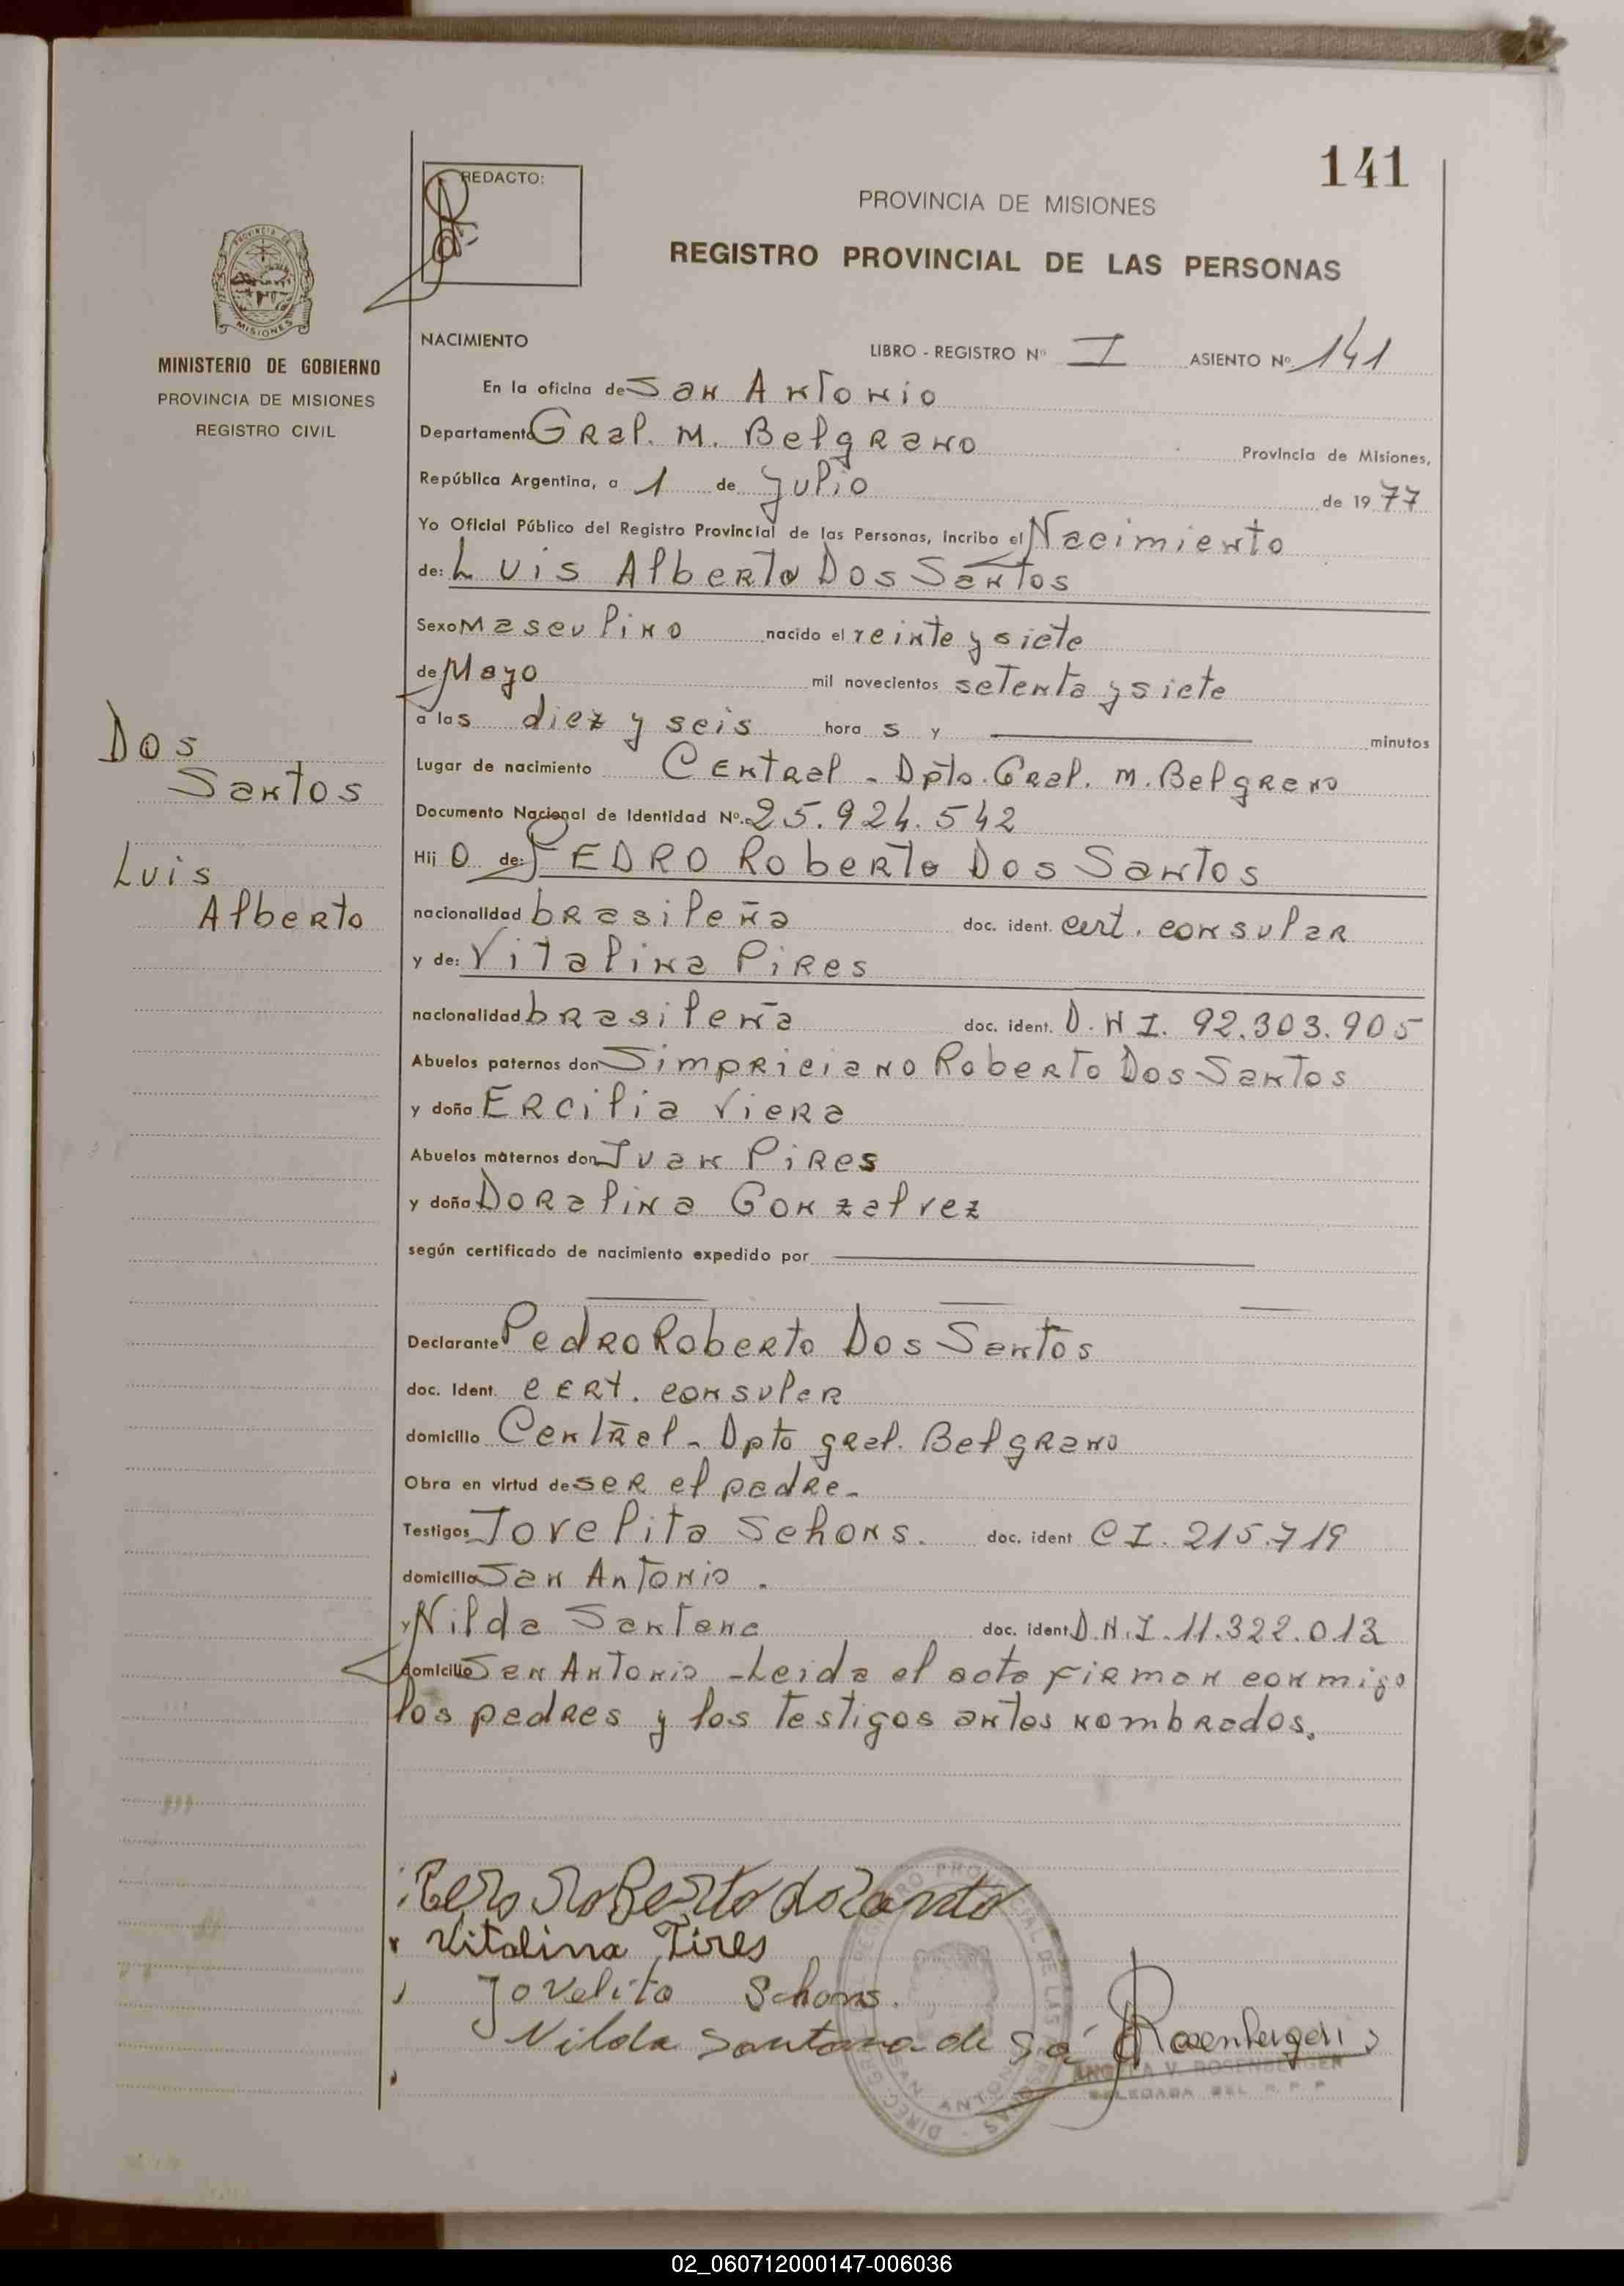 141
REDACTO:
PROVINCIA DE MISIONES
REGISTRO PROVINCIAL DE LAS PERSONAS
PROVINCIA DE
MISIONES
MINISTERIO DE GOBIERNO
PROVINCIA DE MISIONES
REGISTRO CIVIL
NACIMIENTO
LIBRO - REGISTRO Nº I ASIENTO Nº 141
En la oficina de San Antonio
Departamento Gral. M. Belgrano Provincia de Misiones,
República Argentina, a 1 de Julio de 1977
Yo Oficial Público del Registro Provincial de las Personas, incribo el Nacimiento
de: Luis Alberto Dos Santos
Sexo Masculino nacido el veinte y siete
de Mayo mil novecientos setenta y siete
a las diez y seis hora s y minutos
Lugar de nacimiento Central - Dpto. Gral. M. Belgrano
Documento Nacional de Identidad Nº. 25.924.542
Hij o de: PEDRO Roberto Dos Santos
nacionalidad brasileña doc. ident. cert. consular
y de: Vitalina Pires
nacionalidad brasileña doc. ident. D.N.I. 92.303.905
Abuelos paternos don Simpriciano Roberto Dos Santos
y doña Ercilia Viera
Abuelos maternos don Juan Pires
y doña Doralina Gonzalvez
según certificado de nacimiento expedido por
Declarante Pedro Roberto Dos Santos
doc. Ident. cert. consular
domicilio Central - Dpto gral. Belgrano
Obra en virtud de ser el padre.
Testigos Jovelita Schons. doc. ident C I. 215.719
domicilio San Antonio.
y Nilda Santana doc. ident D.N.I. 11.322.013
domicilio San Antonio - Leida el acta firman conmigo
los padres y los testigos antes nombrados.
Dos
Santos
Luis
Alberto
Vitalina Pires
Jovelita Schons.
Nilda Santana de Sá
Rosenberger
ANGELA V. ROSENBERGER
DELEGADA DEL R. P. P.
02_060712000147-006036